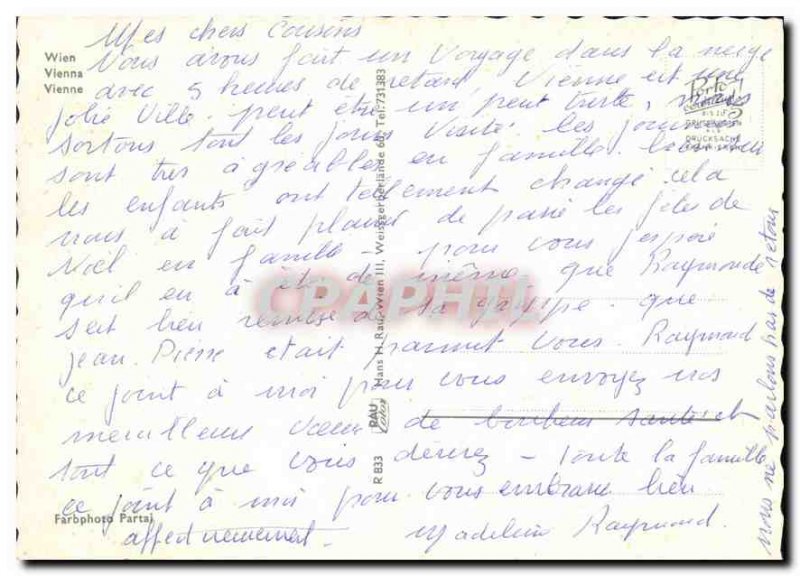 Wien
Vienna
Vienne
Mes chers Cousins
Nous avons fait un Voyage dans la neige
avec 5 heures de retard, Vienne est une
jolie Ville, peut etre un peut triste, nous
sortons tout les jours Visité les
sont tres agréables en famille.
les enfants ont tellement changé cela
nous à fait plaisir de passé les fêtes de
Noël en famille - pour vous j'espère
qu'il en à été de même que Raymonde
seit bien remise de sa grippe que
jean-Pierre était parmit vous. Raymond
ce joint à moi pour vous envoyez nos
merveilleux Vœux de bonheur santé et
tout ce que vous désirez - toute la famille
ce joint à moi pour vous embrasse bien
affectueusement - Madeleine Raymond.
nous ne parlons pas de retour
Farbphoto Partaj
R 833
RAU
Hans H. Rau, Wien III, Weissgerberlände 60, Tel. 731383
Porto
DRUCKSACHE
CPAPHIL